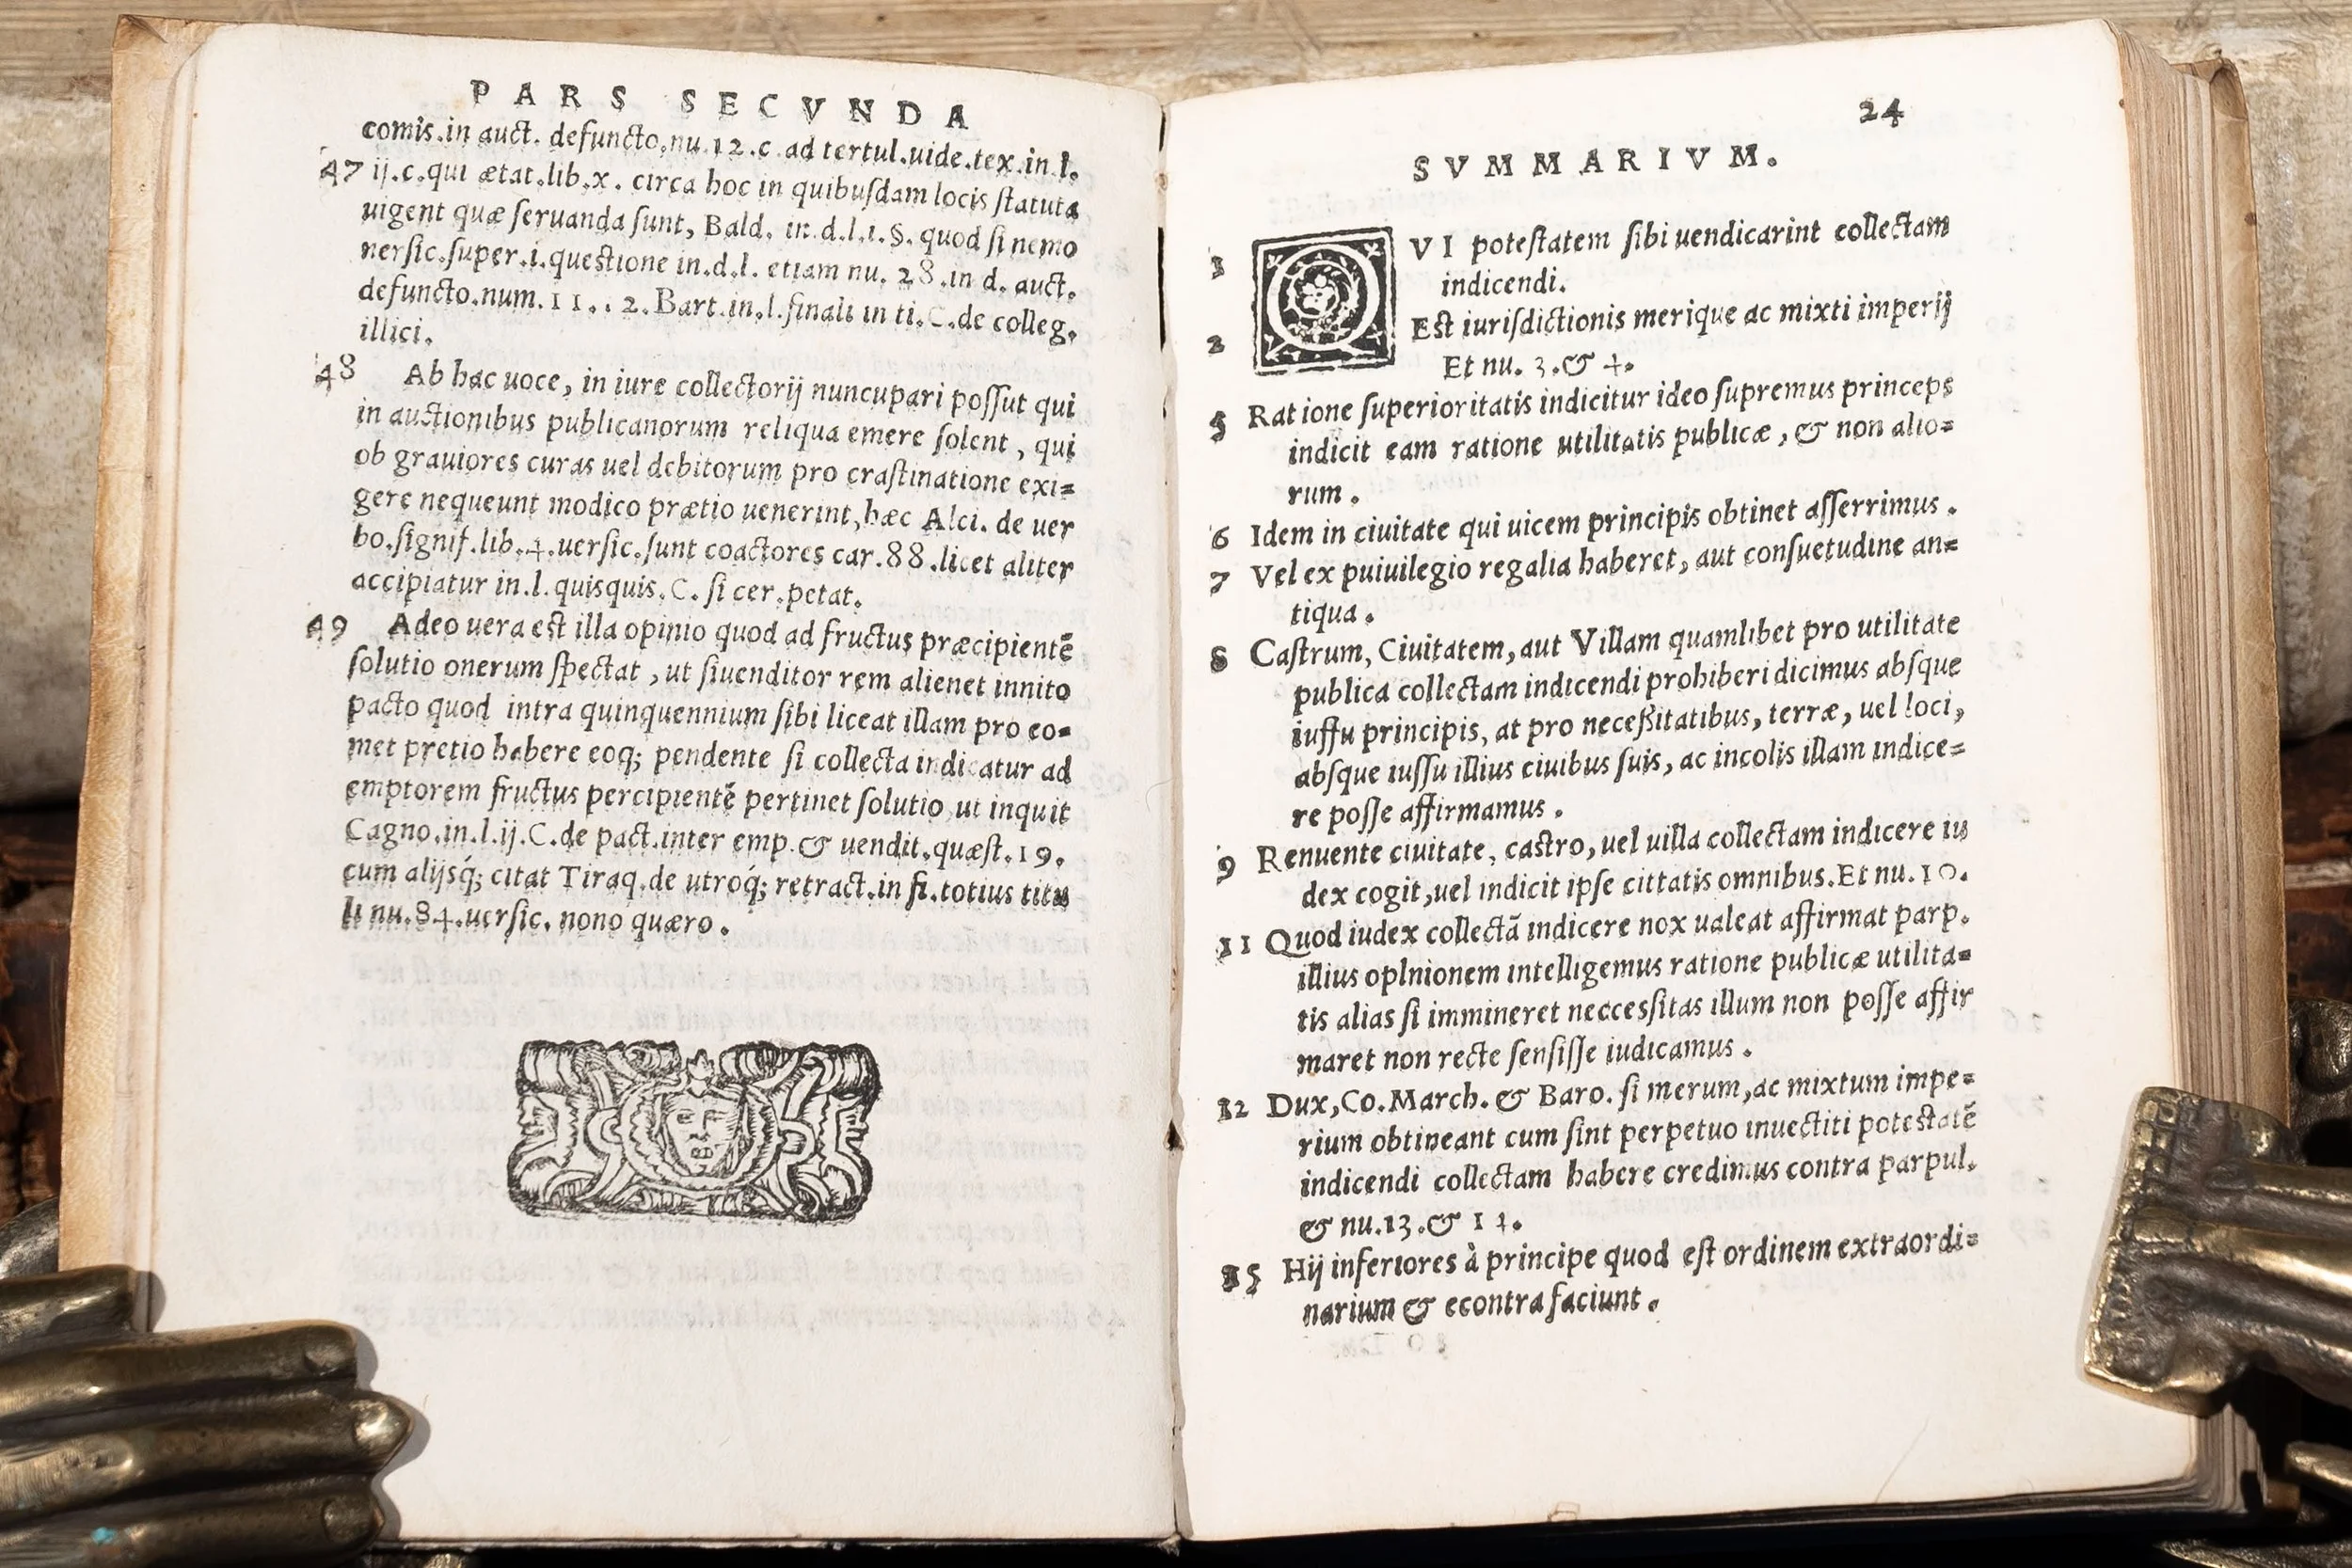 PARS SECVNDA
comis.in auct. defuncto.nu.12.c.ad tertul.uide.tex.in.l.
47 ij.c.qui ætat.lib.x. circa hoc in quibuſdam locis ſtatuta
uigent quæ ſeruanda ſunt, Bald. in.d.l.i.§. quod ſi nemo
uerſic.ſuper.i.queſtione in.d.l. etiam nu. 28.in d. auct.
defuncto.num.11..2.Bart.in.l.finali in ti.C.de colleg.
illici.
48 Ab hac uoce, in iure collectorij nuncupari poſſut qui
in auctionibus publicanorum reliqua emere ſolent, qui
ob grauiores curas uel debitorum pro craſtinatione exi=
gere nequeunt modico prætio uenerint,hæc Alci. de uer
bo.ſignif.lib.4.uerſic.ſunt coactores car.88.licet aliter
accipiatur in.l.quisquis.C. ſi cer.petat.
49 Adeo uera est illa opinio quod ad fructus præcipientē
ſolutio onerum ſpectat, ut ſiuenditor rem alienet innito
pacto quod intra quinquennium ſibi liceat illam pro eo=
met pretio habere eoq; pendente ſi collecta indicatur ad
emptorem fructus percipientē pertinet ſolutio ut inquit
Cagno.in.l.ij.C.de pact.inter emp.& uendit.quæſt.19.
cum alijsq́; citat Tiraq.de utroq́; retract.in fi.totius titu
li nu.84.uerſic. nono quæro.
24
SVMMARIVM.
1 QVI poteſtatem ſibi uendicarint collectam
indicendi.
2 Est iuriſdictionis merique ac mixti imperij
Et nu. 3.& 4.
5 Ratione ſuperioritatis indicitur ideo ſupremus princeps
indicit eam ratione utilitatis publicæ, & non alio=
rum.
6 Idem in ciuitate qui uicem principis obtinet aſſerrimus.
7 Vel ex puiuilegio regalia haberet, aut conſuetudine an=
tiqua.
8 Caſtrum, Ciuitatem, aut Villam quamlibet pro utilitate
publica collectam indicendi prohiberi dicimus abſque
iuſſu principis, at pro neceßitatibus, terræ, uel loci,
abſque iuſſu illius ciuibus ſuis, ac incolis illam indice=
re poſſe affirmamus.
9 Renuente ciuitate, caſtro, uel uilla collectam indicere iu
dex cogit,uel indicit ipſe cittatis omnibus.Et nu.10.
11 Quod iudex collectā indicere nox ualeat affirmat parp.
illius oplnionem intelligemus ratione publicæ utilita=
tis alias ſi immineret neccesſitas illum non poſſe affir
maret non recte ſensiſſe iudicamus.
12 Dux,Co.March.& Baro. ſi merum,ac mixtum impe=
rium obtineant cum ſint perpetuo inuectiti potestatē
indicendi collectam habere credimus contra parpul.
& nu.13.& 14.
15 Hij inferiores à principe quod eſt ordinem extraordi=
narium & econtra faciunt.